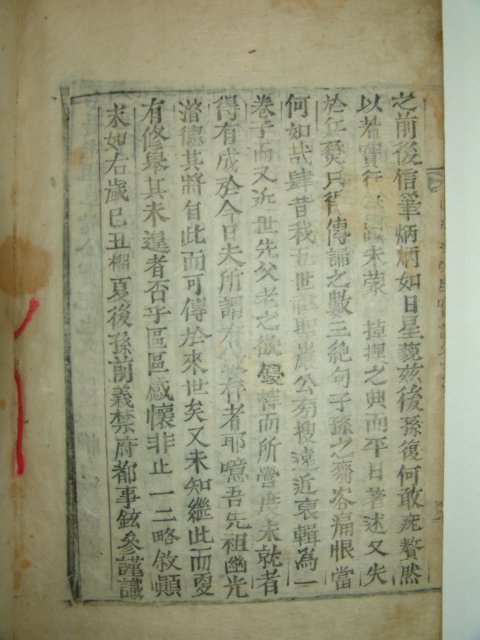 之前後信筆炳炳如日星藐玆後孫復何敢疣贅然
以若實行未蒙 之典而平日著述又失
於兵燹只得傳誦之數三絶句子孫之齎咨痛恨當
何如哉肆昔我五世祖聖巖公旁搜遠近裒輯爲一
卷子而又近世先父老之欲鋟榟而所營度未就者
得有成於今日夫所謂有數存者耶噫吾先祖幽光
潛德其將自此而可傳於來世矣又未知繼此而復
有修擧其未遑者否乎區區感懷非止一二略敘顚
末如右歲己丑榴夏後孫前義禁府都事鉉參謹識